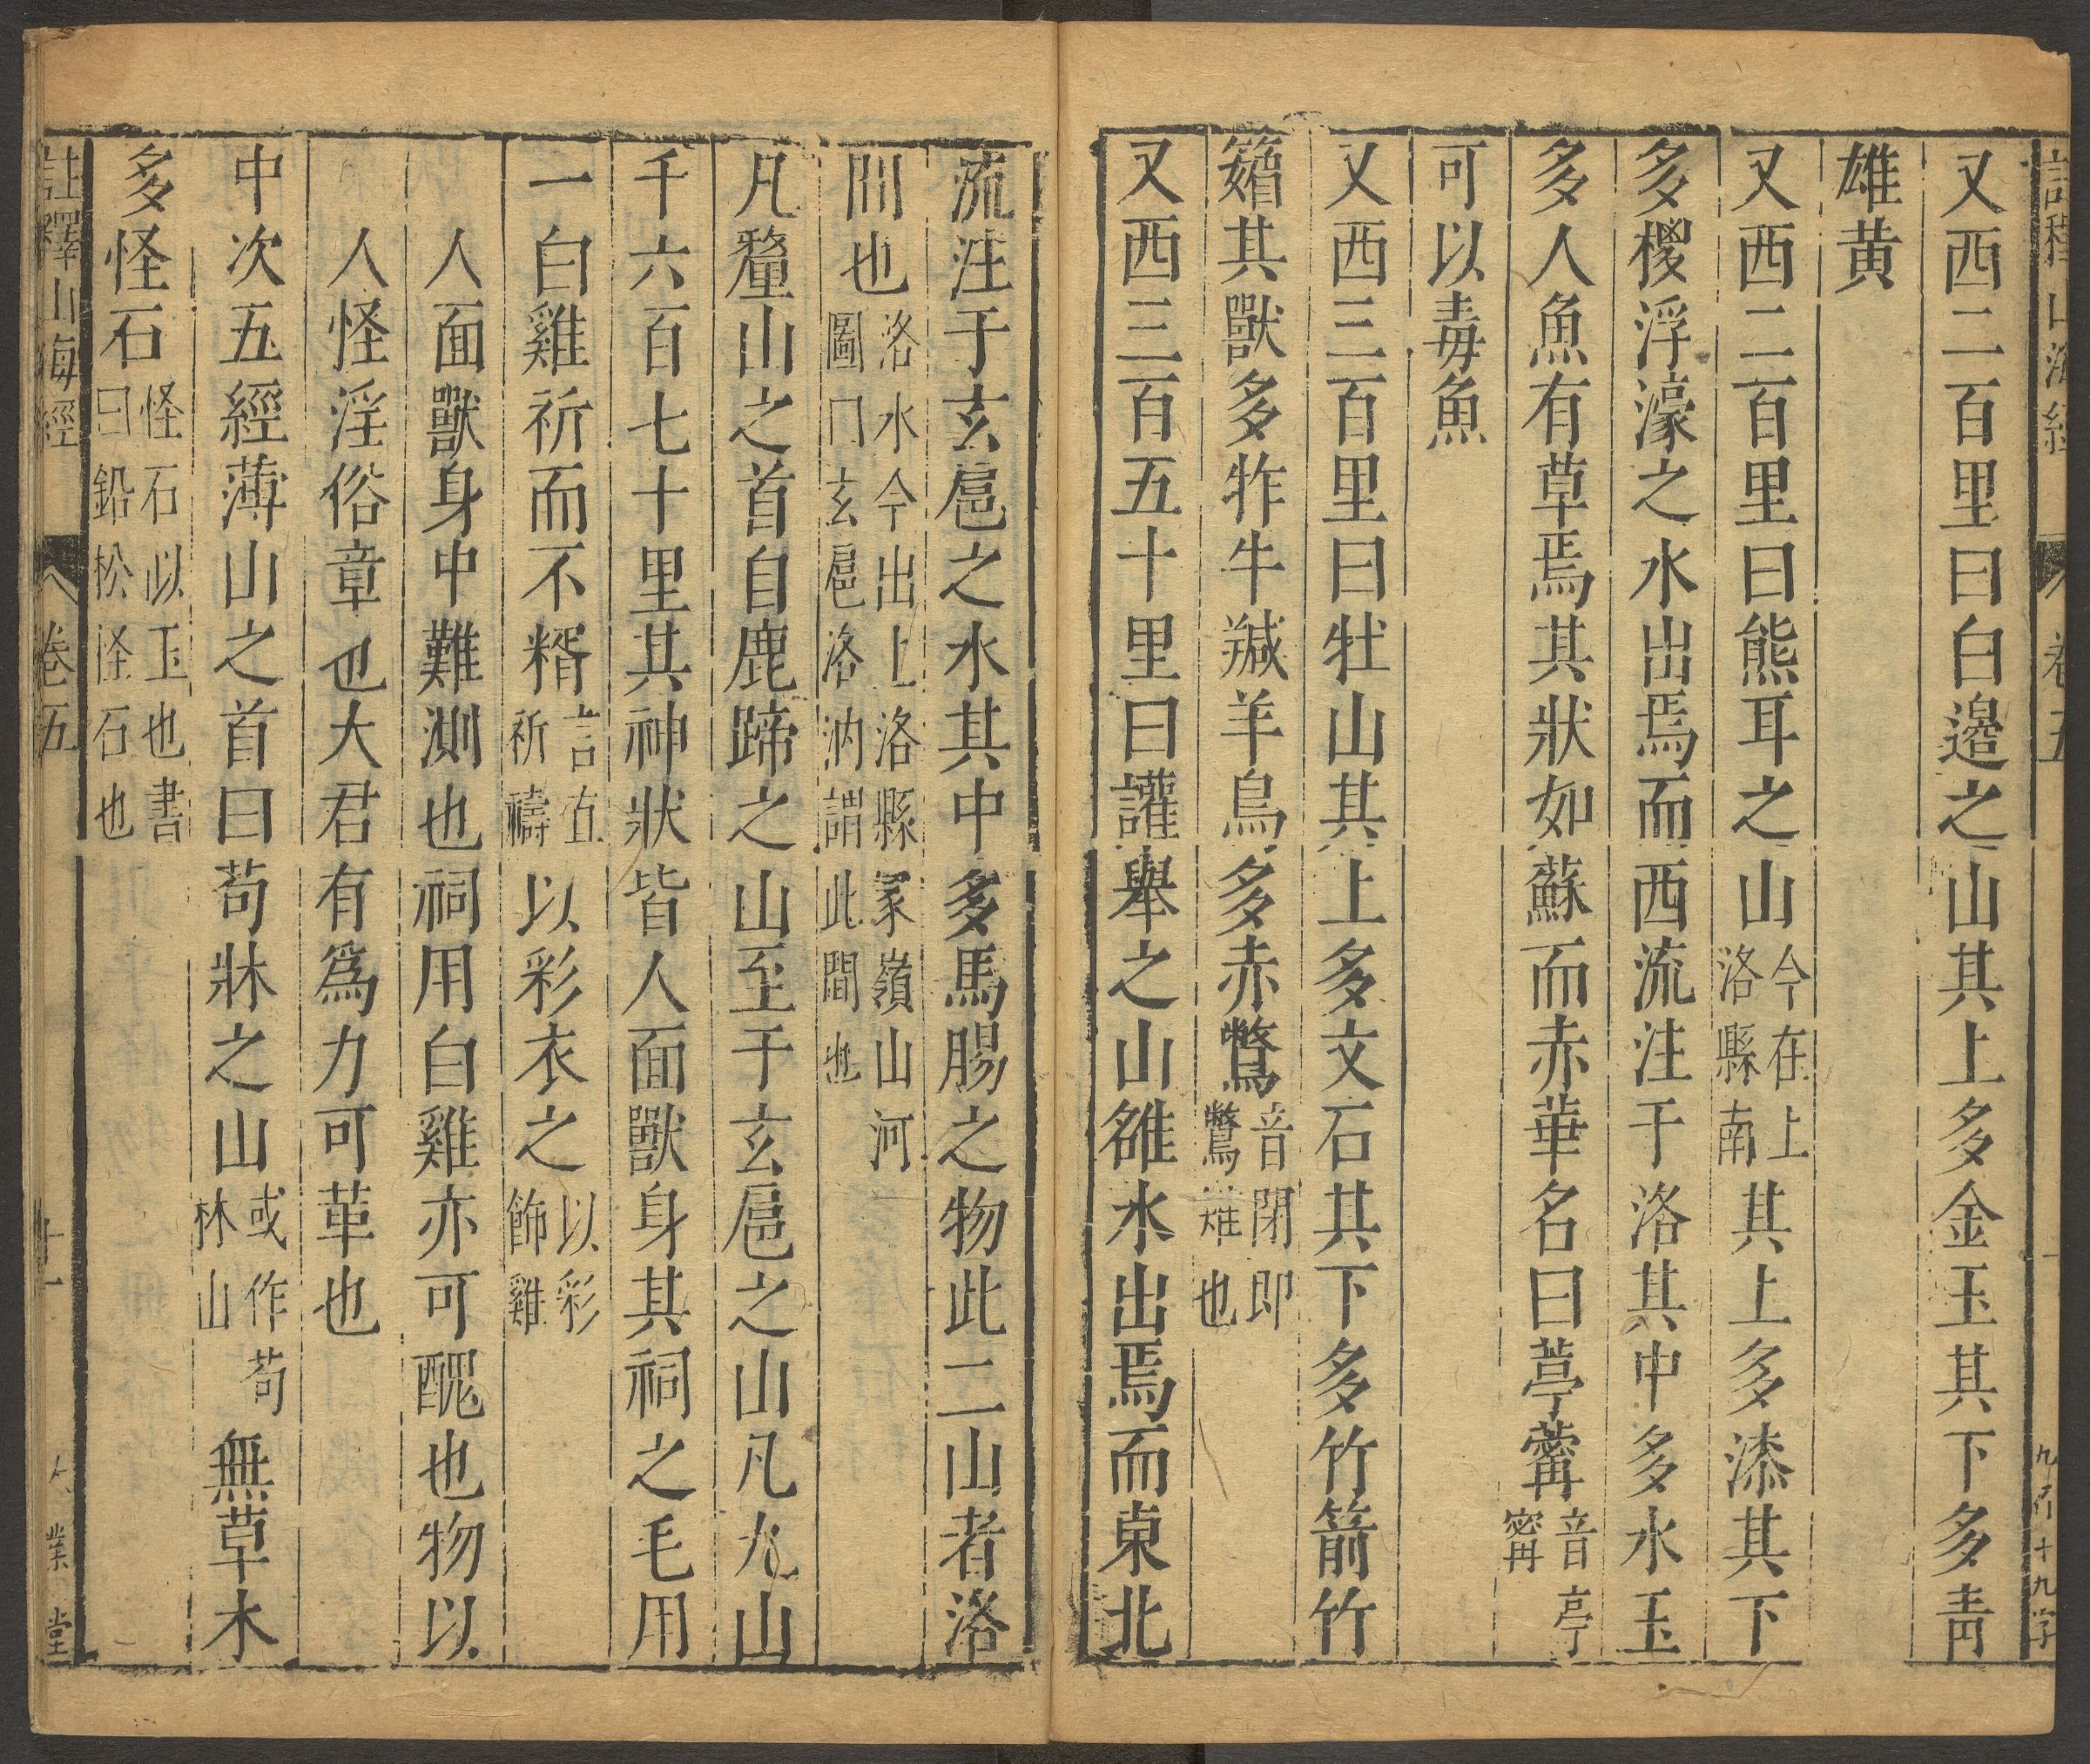 又西二百里曰白邉之山其上多金玉其下多靑
雄黄
又西二百里曰熊耳之山今在上洛縣南其上多漆其下
多椶浮濠之水出焉而西流注于洛其中多水玉
多人魚有草焉其狀如蘇而赤華名曰葶薴音亭寗
可以毒魚
又西三百里曰牡山其上多文石其下多竹箭竹
䉋其獸多㸲牛羬羊鳥多赤鷩音閉即鷩雉也
又西三百五十里曰讙舉之山雒水出焉而東北
流注于玄扈之水其中多馬腸之物此二山者洛
間也洛水今出上洛縣冢嶺山河圖曰玄扈洛汭謂此間也
凡釐山之首自鹿蹄之山至于玄扈之山凡九山
千六百七十里其神狀皆人面獸身其祠之毛用
一白雞祈而不糈言直祈禱以彩衣之以彩飾雞
人面獸身中難測也祠用白雞亦可醜也物以
人怪淫俗章也大君有爲力可革也
中次五經薄山之首曰苟牀之山或作苟林山無草木
多怪石怪石以玉也書曰鉛松怪石也
註釋山海經 卷五 十一 大業堂